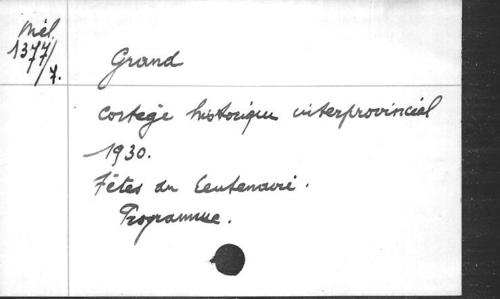 Mél.
1377/
7.
Grand
cortege historique interprovincial
1930.
Fêtes du Centenaire.
Programme.